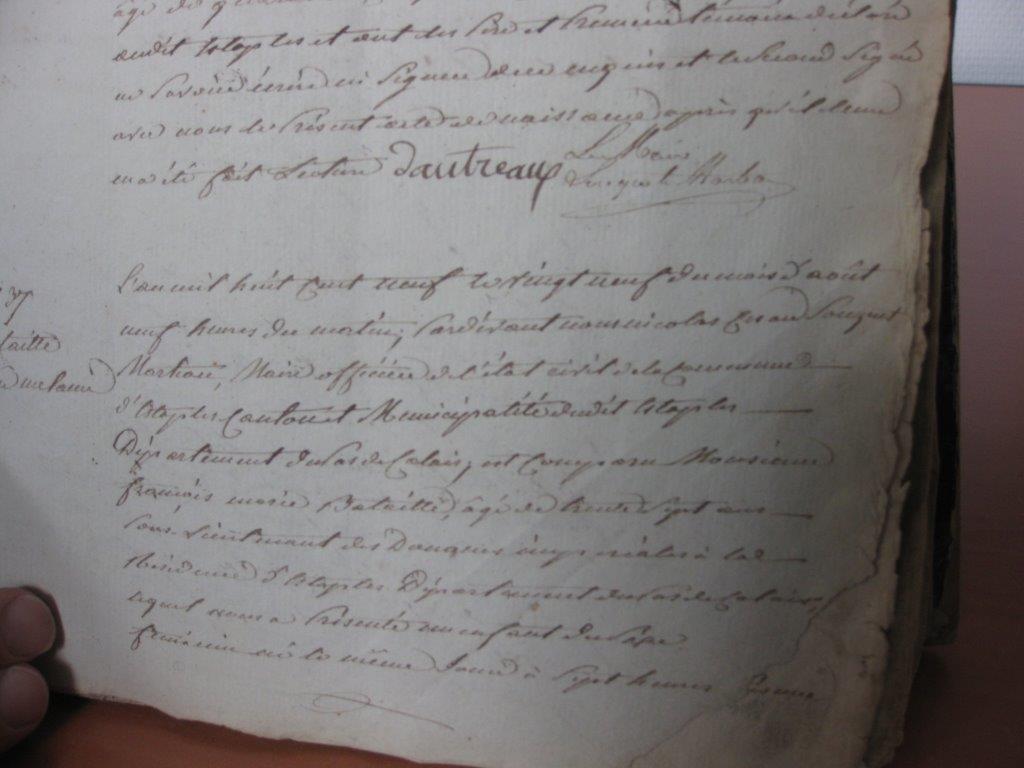 audit Etaples et ont les Père et Premier témoin déclaré
ne savoir écrire ni signer de ce enquis et le second signé
avec nous le Présent acte de naissance après qu'il leur
en a été fait Lecture Dautreaux Le Maire
37
L'an mil huit Cent neuf le vingt neuf du mois d'août
neuf heures du matin, Pardevant nous nicolas
Maire officier de l'état civil de la Commune
d'Etaples Canton et Municipalité dudit Etaples
Département du Pas de Calais, est Comparu Monsieur
françois marie Bataille, agé de trente Sept ans
Sous-Lieutenant des Douanes impériales à la
Résidence d'Etaples Département du Pas de Calais,
lequel nous a Présenté un enfant du Sexe
féminin né le même Jour à Sept heures